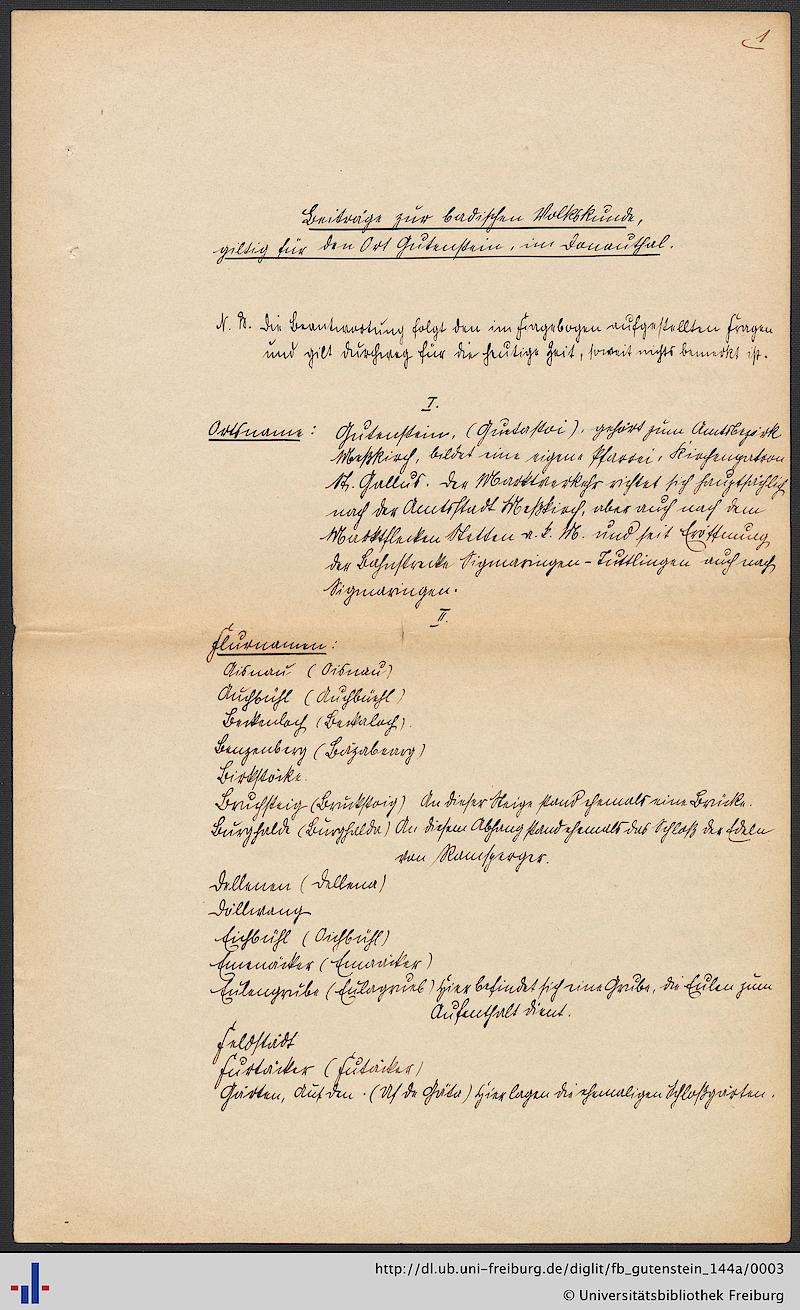 1
Beiträge zur badischen Volkskunde,
giltig für den Ort Gutenstein, im Donauthal.
N. B. Die Beantwortung folgt den im Fragebogen aufgestellten Fragen
und gilt durchweg für die heutige Zeit, soweit nichts bemerkt ist.
I.
Ortsname: Gutenstein, (Guetastoi), gehört zum Amtsbezirk
Meßkirch, bildet eine eigene Pfarrei, Kirchenpatron
St. Gallus. Der Marktverkehr richtet sich hauptsächlich
nach der Amtsstadt Meßkirch, aber auch nach dem
Marktflecken Stetten a. k. M. und seit Eröffnung
der Bahnstrecke Sigmaringen-Tuttlingen auch nach
Sigmaringen.
II.
Flurnamen:
Aisnau (Oisnau)
Auchbühl (Auchbüehl)
Beckenloch (Beckaloch).
Benzenberg (Bäzabearg)
Birkstöcke.
Bruchsteig (Bruckstoig) An dieser Steige stand ehemals eine Brücke.
Burghalde (Burghalda) An diesem Abhang stand ehemals das Schloß der Edeln
von Ramsperger.
Dellenen (Dellena)
Döllwang
Eichbühl (Oichbühl)
Emenäcker (Emaäcker)
Eulengrube (Eulagrueb) Hier befindet sich eine Grube, die Eulen zum
Aufenthalt dient.
Feldstädt
Furtäcker (Futäcker)
Gärten, Auf den. (Uf de Gäta) Hier lagen die ehemaligen Schloßgärten.
http://dl.ub.uni-freiburg.de/diglit/fb_gutenstein_144a/0003
© Universitätsbibliothek Freiburg